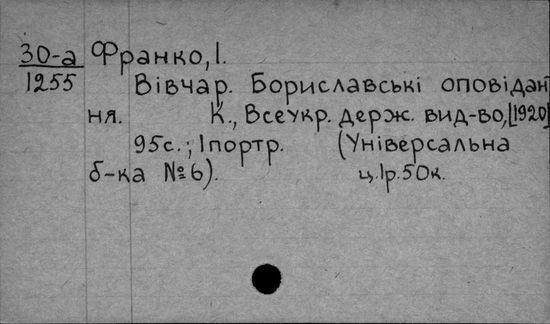 30-а Франко, І.
1255 Вівчар. Бориславські оповідан
ня. К., Всеукр. держ. вид-во, [1920]
95с.; 1портр. (Універсальна
б-ка №6). ц.1р.50к.